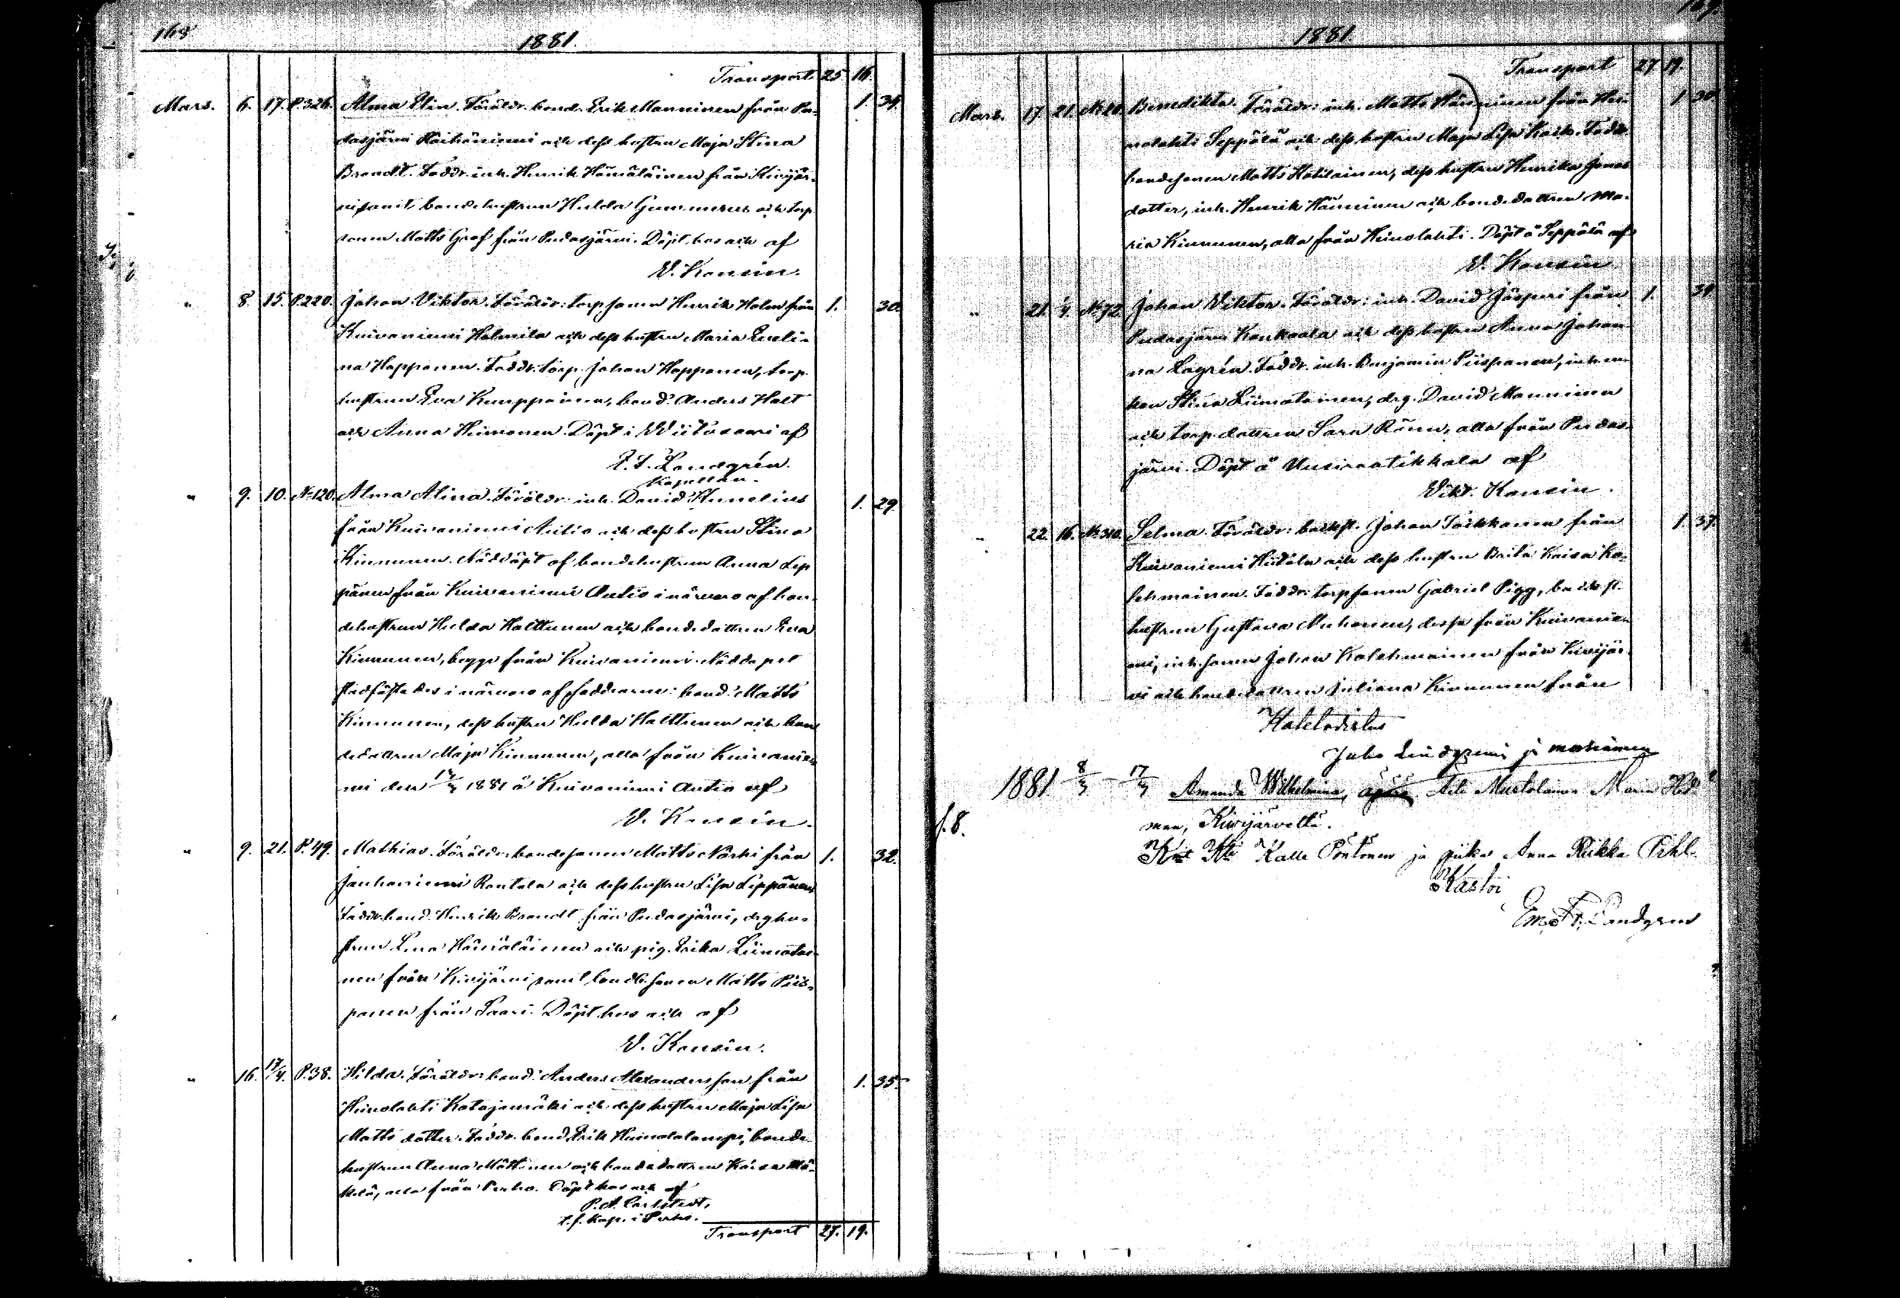 168
1881.
Transport 25 16.
Mars. 6. 17. P.326. Alma Elin. Föräldr. bond. Erik Manninen från Pu- 1. 34.
dasjärvi Haikäniemi och dess hustru Maja Stina
Brandt. Faddr. inh. Henrik Hämäläinen från Kivijär-
vi samt bondehustrun Hulda Gummerus och torp.
sonen Matts Graf från Pudasjärvi. Döpt hos och af
V. Konsin.
" 8. 15. P.220. Johan Viktor. Föräldr. torp.sonen Henrik Holm från 1. 30.
Kuivaniemi Holmila och dess hustru Maria Eveli-
na Hopponen. Faddr. torp. Johan Hopponen, torp.
hustrun Eva Kumppainen, bond. Anders Holt
och Anna Heinonen. Döpt i Wiitasaari af
E. F. Landgrén.
Kapellan.
" 9. 10. No 120. Alma Alina. Föräldr. inh. David Kunelius 1. 29
från Kuivaniemi Autio och dess hustru Stina
Kinnunen. Nöddöpt af bondehustrun Anna Lep
pänen från Kuivaniemi Autio i närvaro af bon-
dehustrun Hulda Halttunen och bondedottren Eva
Kinnunen, begge från Kuivaniemi. Nöddopet
stadfästades i närvaro af faddrarne: bond. Matts
Kinnunen, dess hustru Hulda Halttunen och bon
dedottren Maja Kinnunen, alla från Kuivanie-
mi den 17/3 1881 å Kuivaniemi Autio af
V. Konsin.
" 9. 21. P.49. Mathias. Föräldr. bondesonen Matts Närhi från 1. 32.
Jauhoniemi Rantala och dess hustru Lisa Leppänen
Faddr. bond. Henrik Brandt från Pudasjärvi, drg.hu-
strun Lena Hämäläinen och pig. Erika Liimatai-
nen från Kivijärvi samt bondesonen Matts Piis-
panen från Saari. Döpt hos och af
V. Konsin.
" 16. 17/4. P.38. Hilda. Föräldr. bond. Anders Alexandersson från 1. 35.
Heinolahti Katajamäki och dess hustru Maja Lisa
Matts dotter. Faddr. bond. Erik Humalalampi, bonde-
hustrun Anna Möttönen och bondedottren Kaisa Mä-
kelä, alla från Perho. Döpt hos och af
P. A. Carlstedt,
t. f. kap. i Perho.
Transport 27. 19.
169.
1881
Transport 27 19.
Mars. 17. 21. No 20. Benedikta. Föräldr. inh. Matts Hänninen från Hei- 1 30
nolahti Seppälä och dess hustru Maja Lisa Kask. Faddr.
bondesonen Matts Hotilainen, dess hustru Henrika Jonas
dotter, inh. Henrik Hänninen och bond.dottren Ma-
ria Kinnunen, alla från Heinolahti. Döpt å Seppälä af
V. Konsin.
" 21. 1/4. No 72. Johan Viktor. Föräldr. inh. David Jäsperi från 1. 39
Pudasjärvi Konkoala och dess hustru Anna Johan-
na Lagrén. Faddr. inh. Benjamin Piispanen, inh.en-
kan Stina Liimatainen, drg. David Manninen
och torp.dottren Sara Ränn, alla från Pudas-
järvi. Döpt å Uusiraatikkala af
Vikt. Konsin.
" 22. 16. No 310. Selma. Föräldr. backst. Johan Tarkkanen från 1. 37.
Kuivaniemi Hietala och dess hustru Brita Kaisa Ka-
lehmainen. Faddr. torpsonen Gabriel Pigg, backst.
hustrun Gustava Auhonen, dessa från Kuivanie-
mi, inh.sonen Johan Kalehmainen från Kivijär-
vi och bondedottren Juliana Kinnunen från
Juho Lindgreni ja
1881 8/3 17/3 Amanda Wilhelmina, Äiti Mustolainen Maria Hed
man, Kivijärveltä.
f. 8.
Kalle Pöntönen ja piika Anna Riikka Pihl.
Kastoi
Em. Fr. Landgren